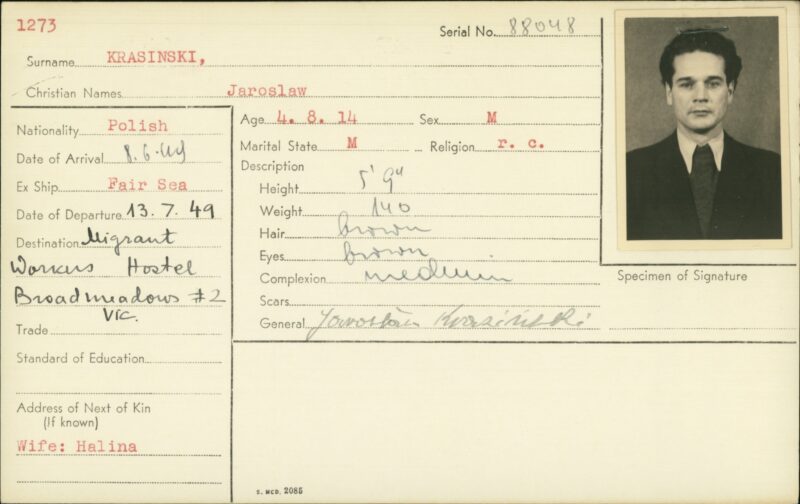 1273
Serial No. 88048
Surname KRASINSKI,
Christian Names Jaroslaw
Nationality Polish
Date of Arrival 8.6.49
Ex Ship Fair Sea
Date of Departure 13.7.49
Destination Migrant
Workers Hostel
Broadmeadows #2
Vic.
Trade
Standard of Education
Address of Next of Kin
(If known)
Wife: Halina
Age 4. 8. 14 Sex M
Marital State M Religion r. c.
Description
Height 5' 9"
Weight 140
Hair brown
Eyes brown
Complexion medium
Scars
General Jarosław Krasiński
Specimen of Signature
S. MCD. 2085